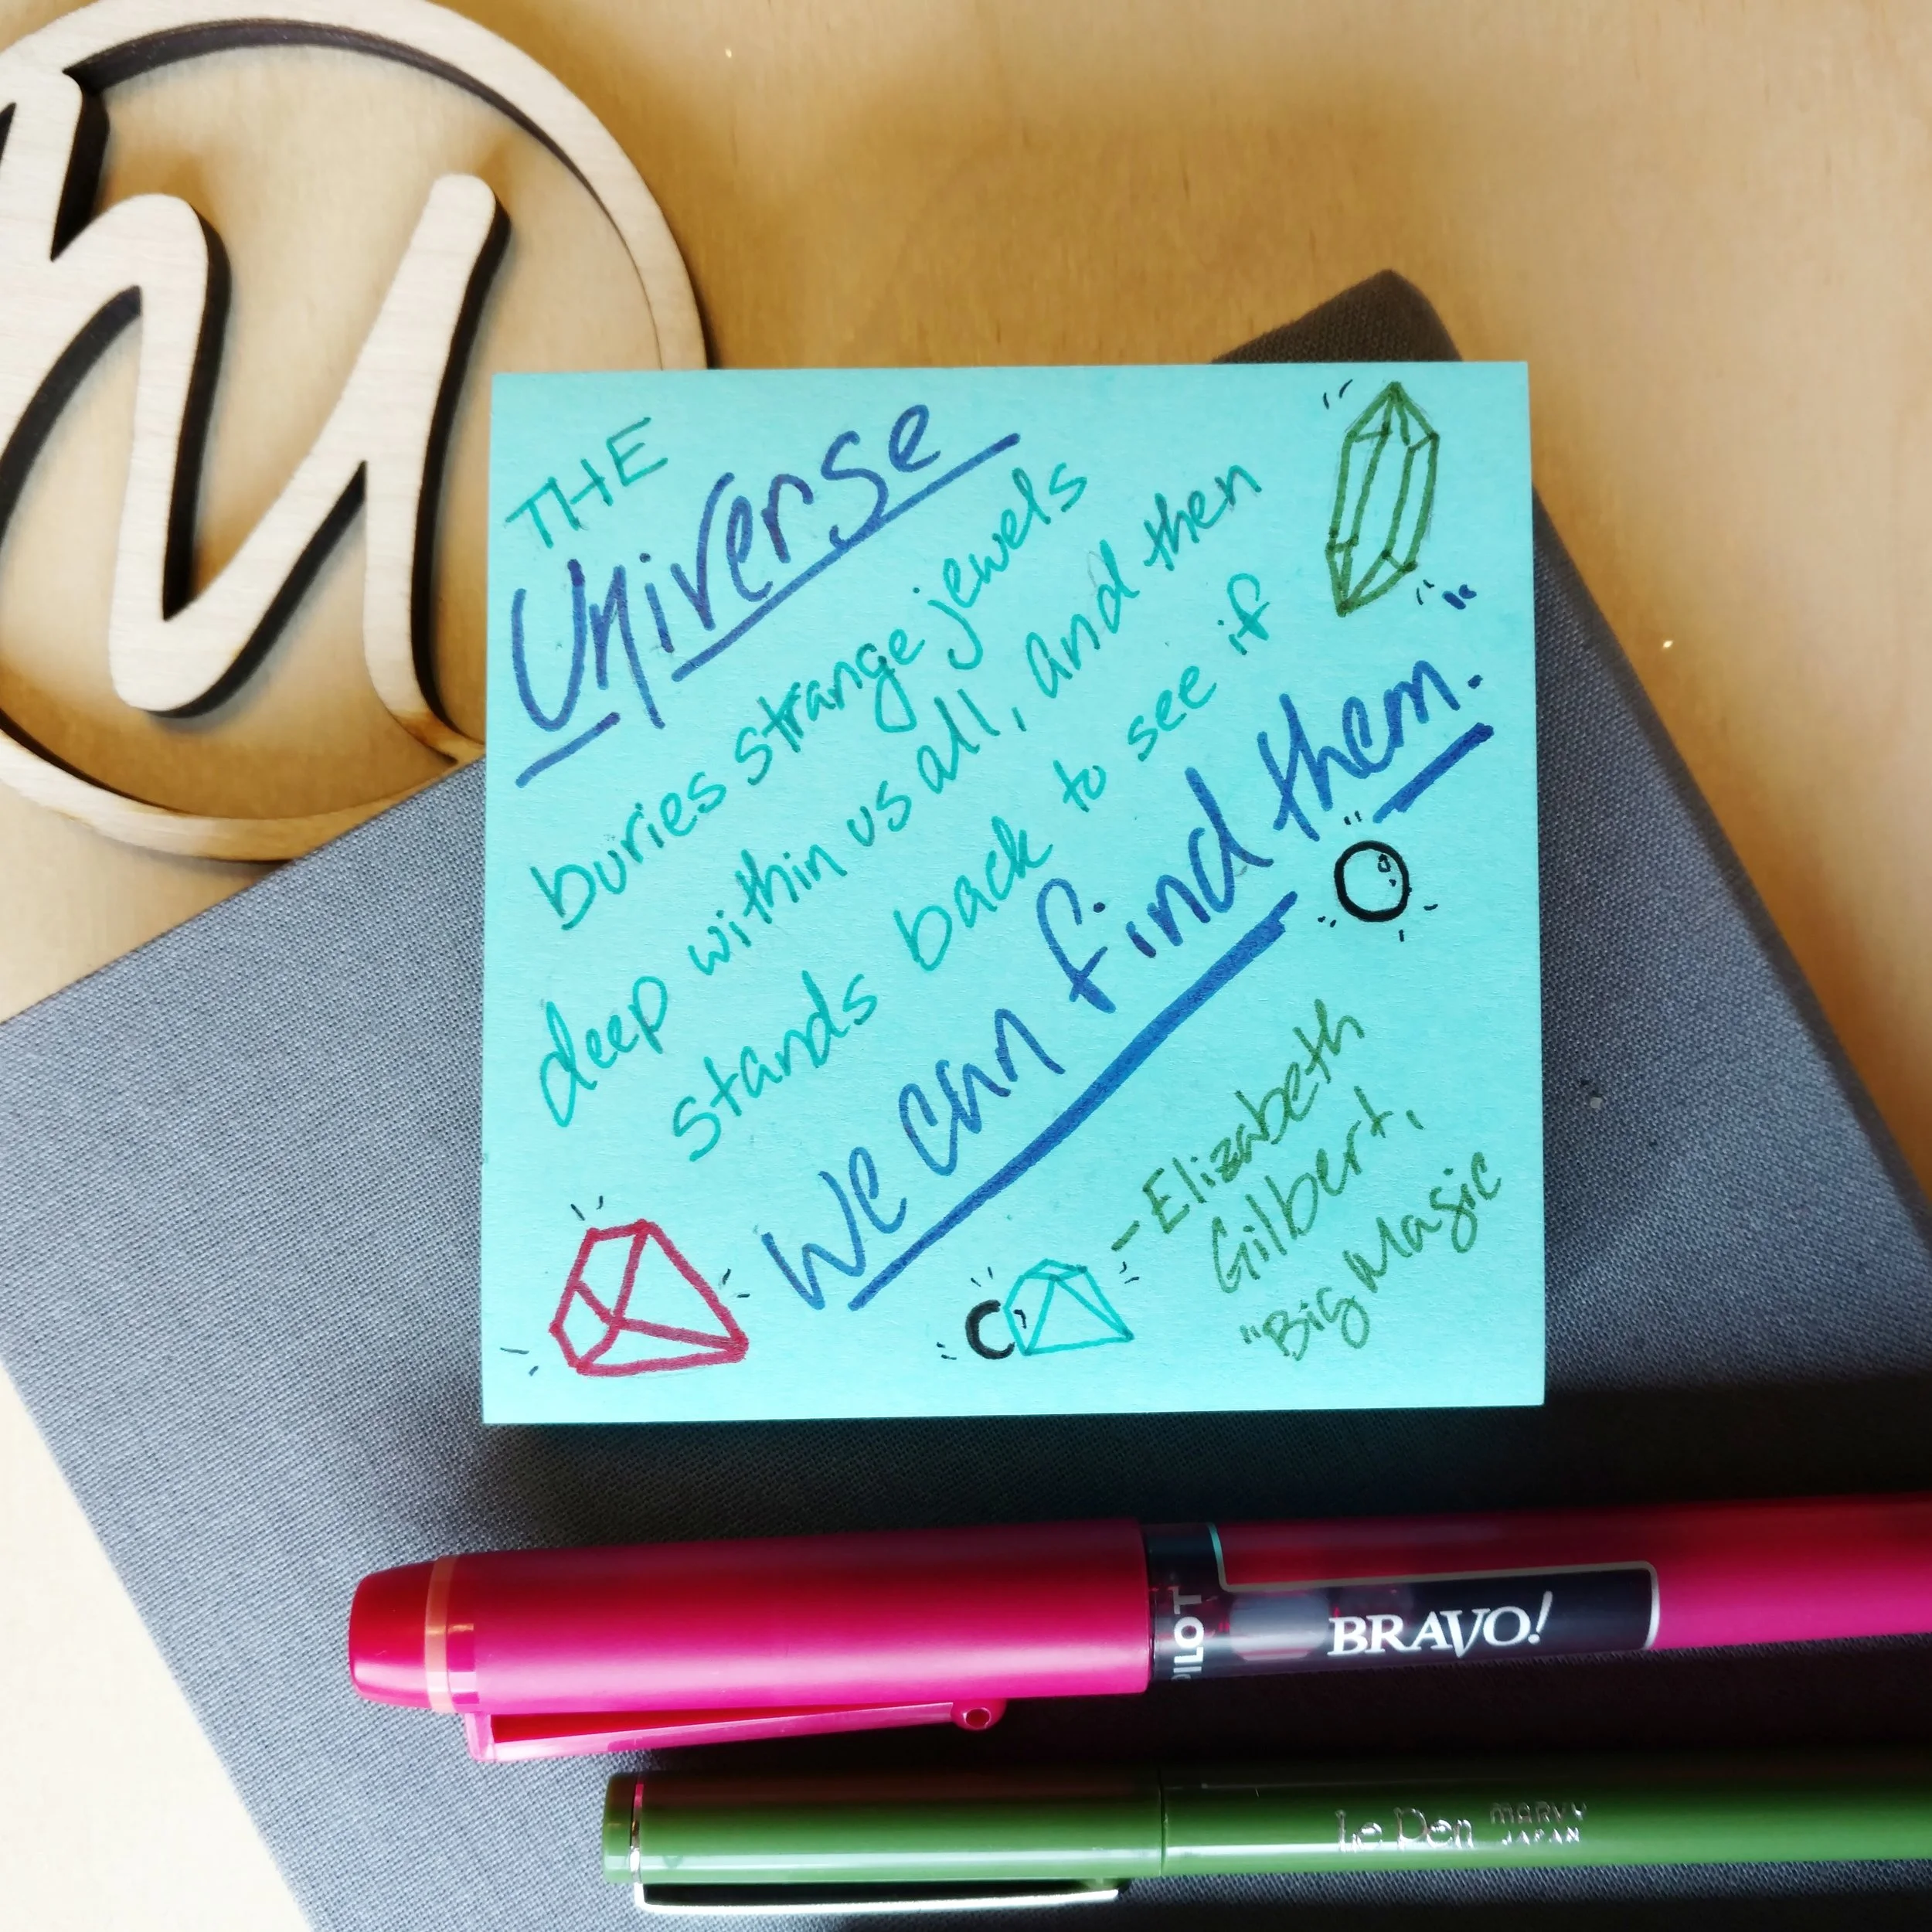 THE
Universe
buries strange jewels
deep within us all, and then
stands back to see if
we can find them.
- Elizabeth
Gilbert,
"Big Magic
PILOT
BRAVO!
Le Pen MARVY
JAPAN